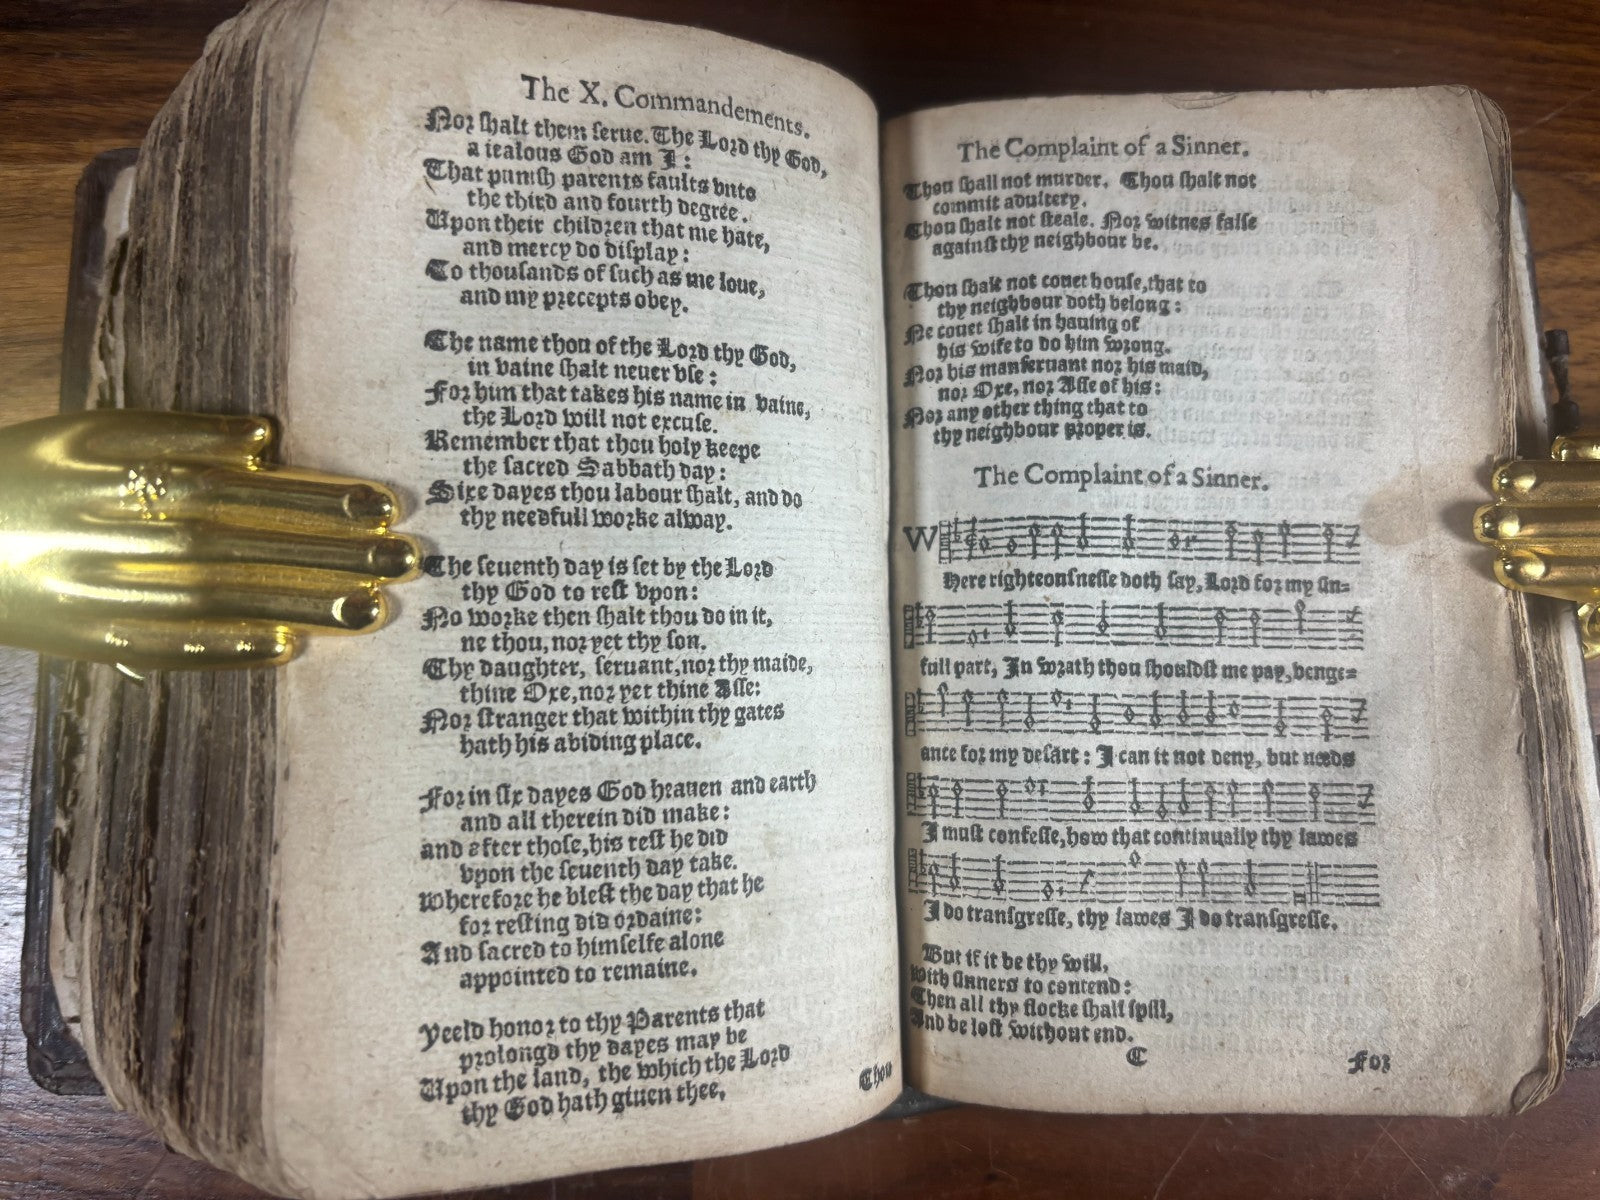 The X. Commandements.
Nor shalt them serue. The Lord thy God,
a iealous God am I:
That punish parents faults vnto
the third and fourth degree.
Vpon their children that me hate,
and mercy do display:
To thousands of such as me loue,
and my precepts obey.
The name thou of the Lord thy God,
in vaine shalt neuer vse:
For him that takes his name in vaine,
the Lord will not excuse.
Remember that thou holy keepe
the sacred Sabbath day:
Sixe dayes thou labour shalt, and do
thy needfull worke alway.
The seuenth day is set by the Lord
thy God to rest vpon:
No worke then shalt thou do in it,
ne thou, nor yet thy son.
Thy daughter, seruant, nor thy maide,
thine Oxe, nor yet thine Asse:
Nor stranger that within thy gates
hath his abiding place.
For in six dayes God heauen and earth
and all therein did make:
and after those, his rest he did
vpon the seuenth day take.
Wherefore he blest the day that he
for resting did ordaine:
And sacred to himselfe alone
appointed to remaine.
Yeeld honor to thy Parents that
prolongd thy dayes may be
Upon the land, the which the Lord
thy God hath giuen thee.
Thou
The Complaint of a Sinner.
Thou shall not murder. Thou shalt not
commit adultery.
Thou shalt not steale. Nor witnes false
against thy neighbour be.
Thou shalt not couet house, that to
thy neighbour doth belong:
Ne couet shalt in hauing of
his wife to do him wrong.
Nor his manseruant nor his maid,
nor Oxe, nor Asse of his:
Nor any other thing that to
thy neighbour proper is.
The Complaint of a Sinner.
W
Here righteousnesse doth say, Lord for my sin-
full part, In wrath thou shouldst me pay, venge-
ance for my desart: I can it not deny, but needs
I must confesse, how that continually thy lawes
I do transgresse, thy lawes I do transgresse.
But if it be thy will,
With sinners to contend:
Then all thy flocke shall spill,
And be lost without end.
C
For